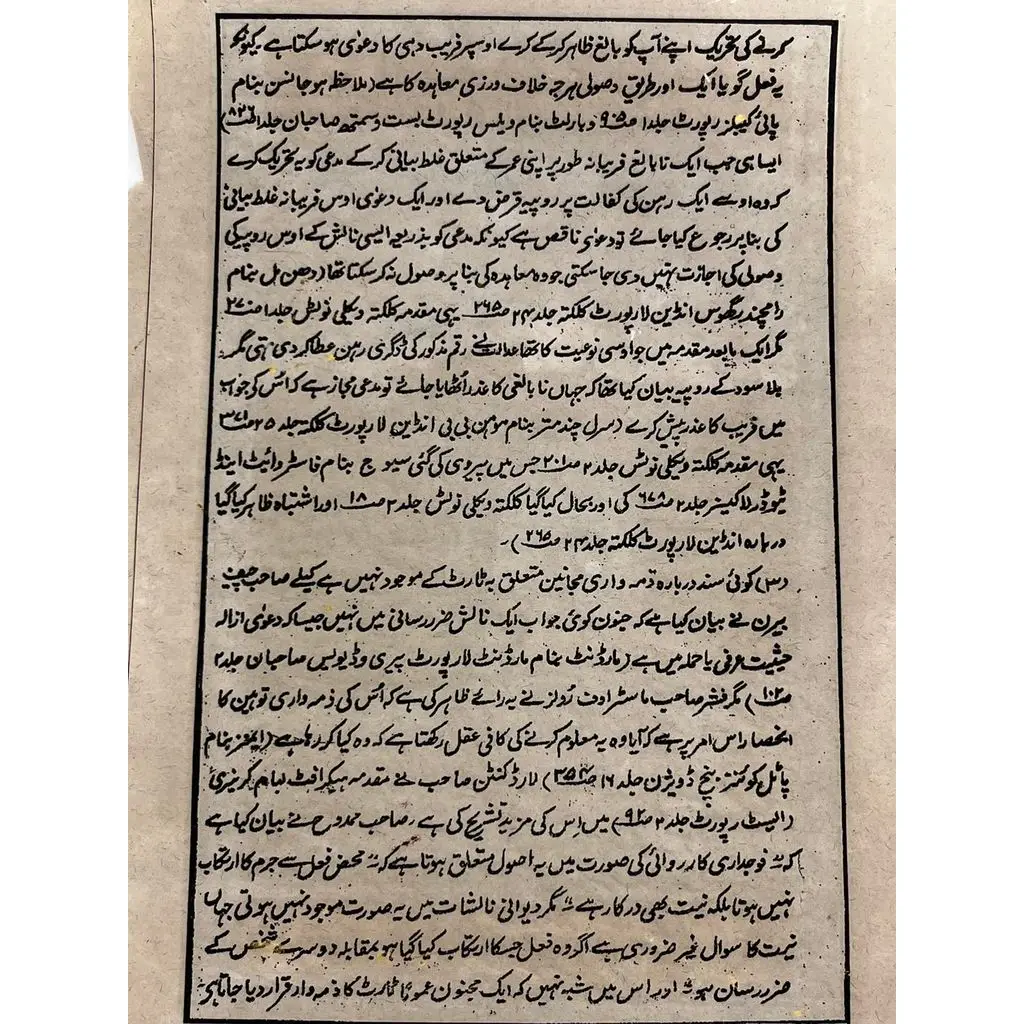 کرنے کی تحریک اپنے آپ کو بالغ ظاہر کرکے کرے اوسپر فریب دہی کا دعوٰی ہو سکتا ہے۔ کیونکہ
یہ فعل گویا ایک اور طریق وصولی ہرجہ خلاف ورزی معاہدہ کا ہے (ملاحظہ ہو جانسن بنام
پائی کیبلز رپورٹ جلد ۱ صـ ۹۰۵ و بارلٹ بنام ویلس رپورٹ بست و سمتھ صاحبان جلد ۱ صـ ۸۳۶)
ایسا ہی جب ایک نابالغ فریبانہ طور پر اپنی عمر کے متعلق غلط بیانی کرکے مدعی کو یہ تحریک کرے
کہ وہ اوسے ایک رہن کی کفالت پر روپیہ قرض دے اور ایک دعوی اوس فریبانہ غلط بیانی
کی بنا پر رجوع کیا جائے تو دعوٰی ناقص ہے کیونکہ مدعی کو بذریعہ ایسی نالش کے اوس روپیکی
وصولی کی اجازت نہیں دی جا سکتی جو وہ معاہدہ کی بنا پر وصول نہ کر سکتا تھا (دھن مل بنام
رامچندر گھوس انڈین لا رپورٹ کلکتہ جلد ۲۴ صـ ۲۶۵ یہی مقدمہ کلکتہ ویکلی نوٹس جلد ۱ صـ ۲۷۰
مگر ایک مابعد مقدمہ میں جو اوسی نوعیت کا تھا عدالت نے رقم مذکور کی ڈگری رہن عطا کر دی تہی مگر
بلا سود کے روپیہ بیان کیا تھا کہ جہاں نابالغی کا عذر اُٹھایا جائے تو مدعی مجاز ہے کہ اُس کی جواب
میں فریب کا عذر پیش کرے (سرل چند متر بنام موہن بی بی انڈین لا رپورٹ کلکتہ جلد ۲۵ صـ ۳۷۱
یہی مقدمہ کلکتہ ویکلی نوٹس جلد ۲ صـ ۲۰۱ جس میں پیروی کی گئی سیو ج بنام فاسٹر وائیٹ اینڈ
ٹیوڈر لا کیسز جلد ۲ صـ ۶۷۸ کی اور بحال کیا گیا کلکتہ ویکلی نوٹس جلد ۲ صـ ۱۸ اور اشتباہ ظاہر کیا گیا
دربارہ انڈین لا رپورٹ کلکتہ جلد ۲۴ صـ ۲۶۵)۔
(۳) کوئی سند دربارہ ذمہ واری مجانین متعلق بہ ٹارٹ کے موجود نہیں ہے کیلے صاحب چیف
بیرن نے بیان کیا ہے کہ جنون کوئی جواب ایک نالش ضرر رسانی میں نہیں جیسا کہ دعوٰی ازالہ
حیثیت عرفی یا حملہ میں ہے (مارڈنٹ بنام مارڈنٹ لا رپورٹ پیری و ڈیولیس صاحبان جلد ۲
صـ ۱۰۲) مگر فشر صاحب ماسٹر اوف رولز نے یہ رائے ظاہر کی ہے کہ اُس کی ذمہ داری توہین کا
انحصار اس امر پر ہے کہ آیا وہ یہ معلوم کرنے کی کافی عقل رکھتا ہے کہ وہ کیا کر رہا ہے (ایمفز بنام
پاٹل کوئنز بنچ ڈویژن جلد ۱۶ صـ ۳۵۴) لارڈ کنٹن صاحب نے مقدمہ ہیکرافٹ بنام کریزی
(ایسٹ رپورٹ جلد ۲ صـ ۹۲) میں اس کی مزید تشریح کی ہے۔ صاحب ممدوح نے بیان کیا ہے
کہ " فوجداری کارروائی کی صورت میں یہ اصول متعلق ہوتا ہے کہ " محض فعل سے جرم کا ارتکاب
نہیں ہوتا بلکہ نیت بھی درکار ہے " مگر دیوانی نالشات میں یہ صورت موجود نہیں ہوتی جہاں
نیت کا سوال غیر ضروری ہے اگر وہ فعل جسکا ارتکاب کیا گیا ہو بمقابلہ دوسرے شخص کے
ضرر رسان ہو " اور اس میں شبہ نہیں کہ ایک مجنون عموماً ٹارٹ کا ذمہ وار قرار دیا جاتا ہی